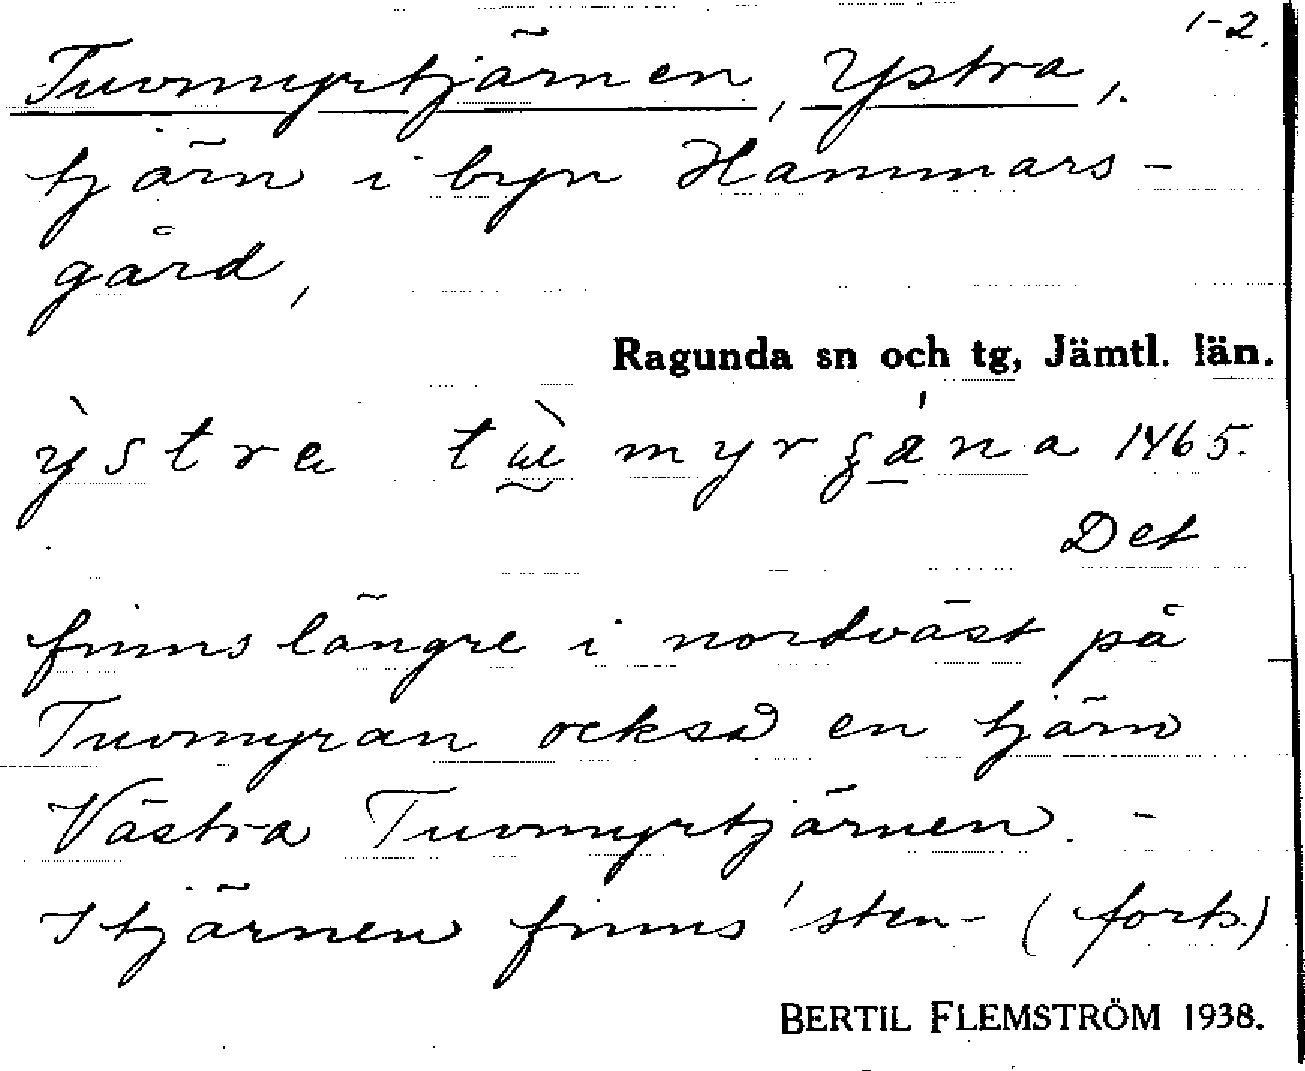 1-2.
Tuvmyrtjärnen, Ystra,
tjärn i byn Hammars-
gård,
Ragunda sn och tg, Jämtl. län.
1465.
Det
finns längre i nordväst på
Tuvmyran också en tjärn
Västra Tuvmyrtjärnen. -
I tjärnen finns 'sten- (forts.)
BERTIL FLEMSTRÖM 1938.